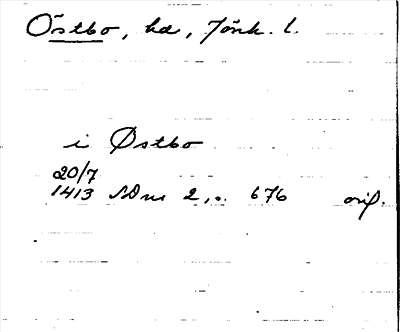 Östbo, hd, Jönk. l.
i Østbo
20/7
1413 SDns 2, s. 676 orig.